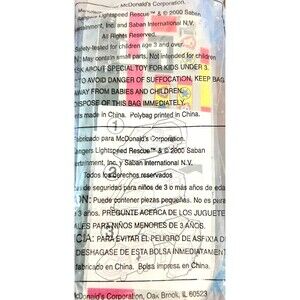 McDonald's Corporation.
angers Lightspeed Rescue™ & © 2000 Saban
tainment, Inc. and Saban International N.V.
All Rights Reserved.
Safety-tested for children age 3 and over.
May contain small parts. Not intended for children
ASK ABOUT SPECIAL TOY FOR KIDS UNDER 3.
TO AVOID DANGER OF SUFFOCATION, KEEP BAG
AWAY FROM BABIES AND CHILDREN.
DISPOSE OF THIS BAG IMMEDIATELY.
nts made in China. Polybag printed in China.
1
Fabricado para McDonald's Corporation.
angers Lightspeed Rescue™ & © 2000 Saban
ertainment, Inc. y Saban International N.V.
Todos los derechos reservados
2
de seguridad para niños de 3 o más años de edad
ÓN: Puede contener piezas pequeñas. No es para
3 años. PREGUNTE ACERCA DE LOS JUGUETE
ALES PARA NIÑOS MENORES DE 3 AÑOS.
3
CIA: PARA EVITAR EL PELIGRO DE ASFIXIA
DESHAGASE DE ESTA BOLSA INMEDIATAMENTE.
fabricado en China. Bolsa impresa en China.
McDonald's Corporation, Oak Brook, IL 60523